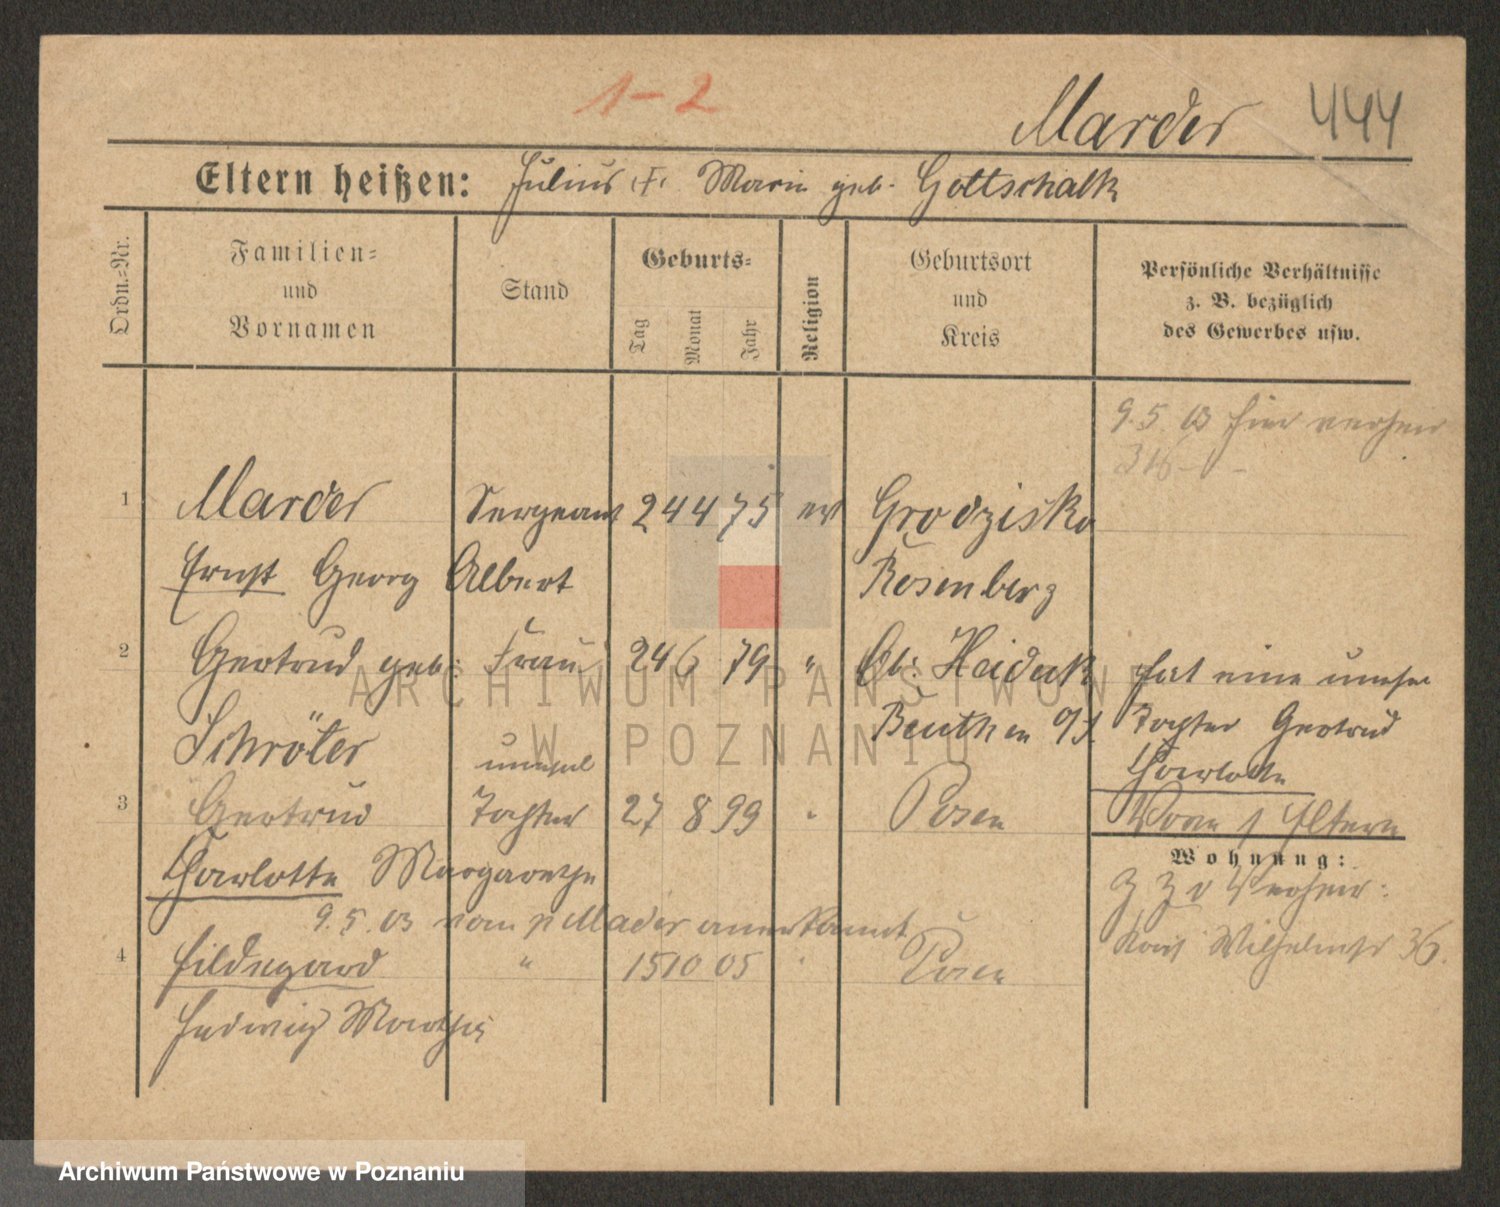 1-2
Marder 444
Eltern heißen: Julius u. Marie geb. Gottschalk
Ordn.-Nr.
Familien-
und
Vornamen
Stand
Geburts-
Tag
Monat
Jahr
Religion
Geburtsort
und
Kreis
Persönliche Verhältnisse
z. B. bezüglich
des Gewerbes usw.
9.5.03 hier verheir
316
1 Marder Sergeant 24 4 75 ev Grodzisko
Ernst Georg Albert Rosenberg
2 Gertrud geb. Frau 24 6 79 " Ob. Heiduk hat eine unehe
Schröter Beuthen O/S. Tochter Gertrud
unehel Charlotte
3 Gertrud Tochter 27 8 99 " Posen Eltern
Charlotte Margarethe
Wohnung:
z Z d Verheir:
9.5.03 vom p Mader anerkannt
4 Hildegard " 15 10 05 " Posen Wilhelmstr 36.
Hedwig Martha
ARCHIWUM PAŃSTWOWE
W POZNANIU
Archiwum Państwowe w Poznaniu